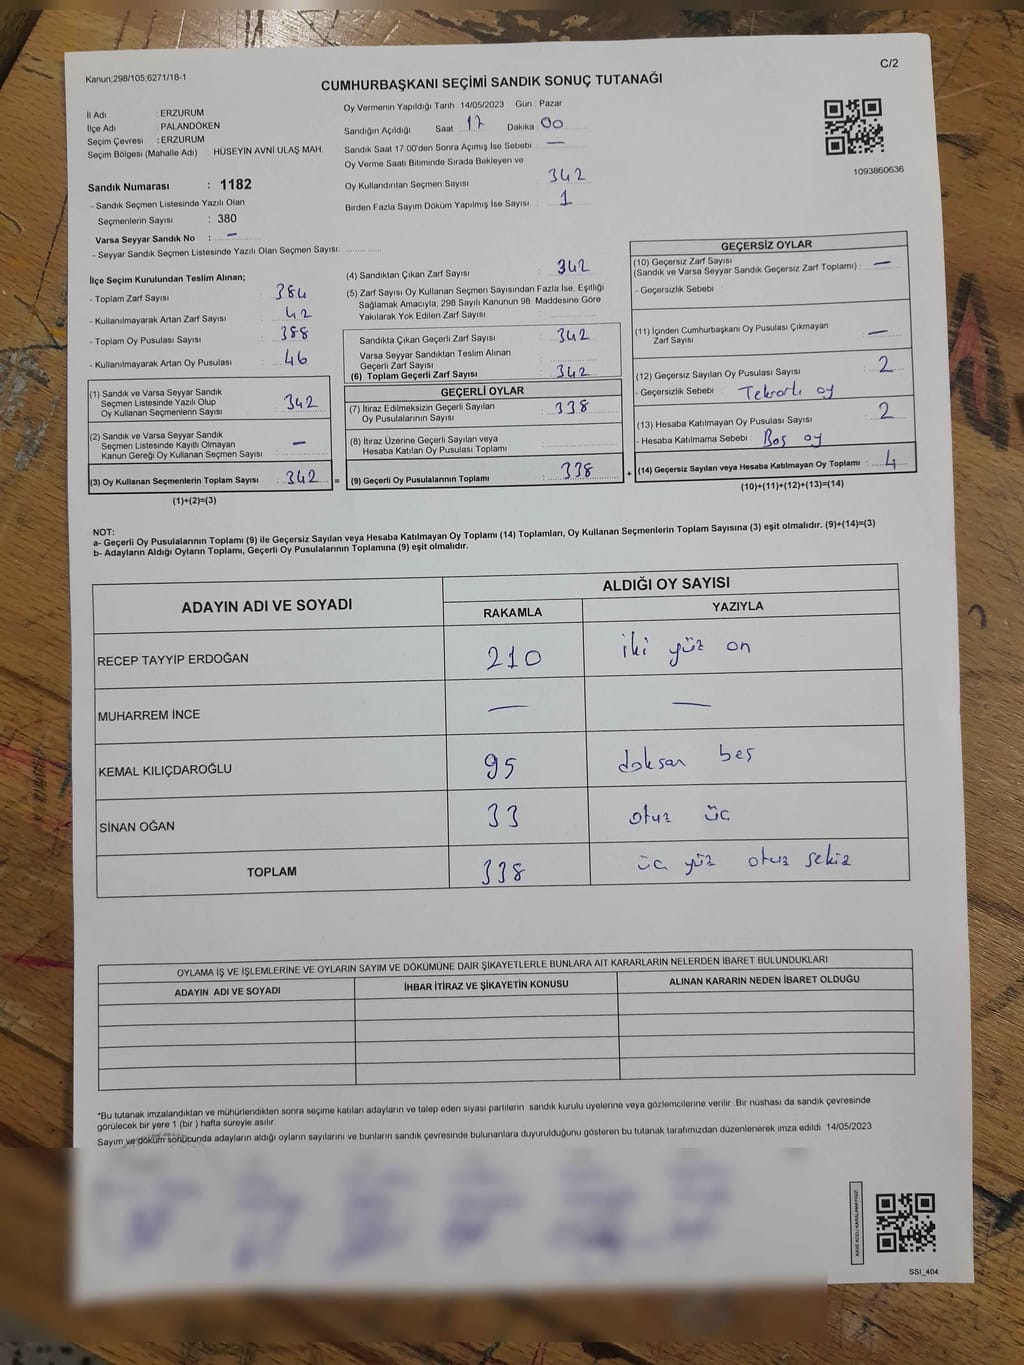 Kanun;298/105,6271/18-1
C/2
CUMHURBAŞKANI SEÇİMİ SANDIK SONUÇ TUTANAĞI
İl Adı : ERZURUM
İlçe Adı : PALANDÖKEN
Seçim Çevresi : ERZURUM
Seçim Bölgesi (Mahalle Adı) : HÜSEYİN AVNİ ULAŞ MAH.
Sandık Numarası : 1182
- Sandık Seçmen Listesinde Yazılı Olan
Seçmenlerin Sayısı : 380
Varsa Seyyar Sandık No : –
- Seyyar Sandık Seçmen Listesinde Yazılı Olan Seçmen Sayısı:
Oy Vermenin Yapıldığı Tarih :14/05/2023 Gün : Pazar
Sandığın Açıldığı Saat 17 Dakika 00
Sandık Saat 17:00'den Sonra Açımış İse Sebebi –
Oy Verme Saati Bitiminde Sırada Bekleyen ve
Oy Kullandırılan Seçmen Sayısı 342
Birden Fazla Sayım Döküm Yapılmış İse Sayısı : 1
1093860636
İlçe Seçim Kurulundan Teslim Alınan;
- Toplam Zarf Sayısı : 384
- Kullanılmayarak Artan Zarf Sayısı : 42
- Toplam Oy Pusulası Sayısı : 388
- Kullanılmayarak Artan Oy Pusulası : 46
(1) Sandık ve Varsa Seyyar Sandık
Seçmen Listesinde Yazılı Olup
Oy Kullanan Seçmenlerin Sayısı : 342
(2) Sandık ve Varsa Seyyar Sandık
Seçmen Listesinde Kayıtlı Olmayan
Kanun Gereği Oy Kullanan Seçmen Sayısı : –
(3) Oy Kullanan Seçmenlerin Toplam Sayısı : 342
(1)+(2)=(3)
(4) Sandıktan Çıkan Zarf Sayısı : 342
(5) Zarf Sayısı Oy Kullanan Seçmen Sayısından Fazla İse, Eşitliği
Sağlamak Amacıyla, 298 Sayılı Kanunun 98. Maddesine Göre
Yakılarak Yok Edilen Zarf Sayısı :
Sandıkta Çıkan Geçerli Zarf Sayısı : 342
Varsa Seyyar Sandıktan Teslim Alınan
Geçerli Zarf Sayısı :
(6) Toplam Geçerli Zarf Sayısı : 342
GEÇERLİ OYLAR
(7) İtiraz Edilmeksizin Geçerli Sayılan
Oy Pusulalarının Sayısı : 338
(8) İtiraz Üzerine Geçerli Sayılan veya
Hesaba Katılan Oy Pusulası Toplamı :
= (9) Geçerli Oy Pusulalarının Toplamı : 338 +
GEÇERSİZ OYLAR
(10) Geçersiz Zarf Sayısı
(Sandık ve Varsa Seyyar Sandık Geçersiz Zarf Toplamı) : –
- Geçersizlik Sebebi :
(11) İçinden Cumhurbaşkanı Oy Pusulası Çıkmayan
Zarf Sayısı : –
(12) Geçersiz Sayılan Oy Pusulası Sayısı : 2
- Geçersizlik Sebebi : Tekrarlı oy
(13) Hesaba Katılmayan Oy Pusulası Sayısı : 2
- Hesaba Katılmama Sebebi : Boş oy
(14) Geçersiz Sayılan veya Hesaba Katılmayan Oy Toplamı : 4
(10)+(11)+(12)+(13)=(14)
NOT:
a- Geçerli Oy Pusulalarının Toplamı (9) ile Geçersiz Sayılan veya Hesaba Katılmayan Oy Toplamı (14) Toplamları, Oy Kullanan Seçmenlerin Toplam Sayısına (3) eşit olmalıdır. (9)+(14)=(3)
b- Adayların Aldığı Oyların Toplamı, Geçerli Oy Pusulalarının Toplamına (9) eşit olmalıdır.
ADAYIN ADI VE SOYADI
ALDIĞI OY SAYISI
RAKAMLA YAZIYLA
RECEP TAYYİP ERDOĞAN 210 iki yüz on
MUHARREM İNCE – –
KEMAL KILIÇDAROĞLU 95 doksan beş
SİNAN OĞAN 33 otuz üç
TOPLAM 338 üç yüz otuz sekiz
OYLAMA İŞ VE İŞLEMLERİNE VE OYLARIN SAYIM VE DÖKÜMÜNE DAİR ŞİKAYETLERLE BUNLARA AİT KARARLARIN NELERDEN İBARET BULUNDUKLARI
ADAYIN ADI VE SOYADI İHBAR İTİRAZ VE ŞİKAYETİN KONUSU ALINAN KARARIN NEDEN İBARET OLDUĞU
*Bu tutanak imzalandıktan ve mühürlendikten sonra seçime katılan adayların ve talep eden siyasi partilerin sandık kurulu üyelerine veya gözlemcilerine verilir .Bir nüshası da sandık çevresinde
görülecek bir yere 1 (bir ) hafta süreyle asılır.
Sayım ve döküm sonucunda adayların aldığı oyların sayılarını ve bunların sandık çevresinde bulunanlara duyurulduğunu gösteren bu tutanak tarafımızdan düzenlenerek imza edildi. 14/05/2023
KARE KODU KARALAMAYINIZ
SSI_404